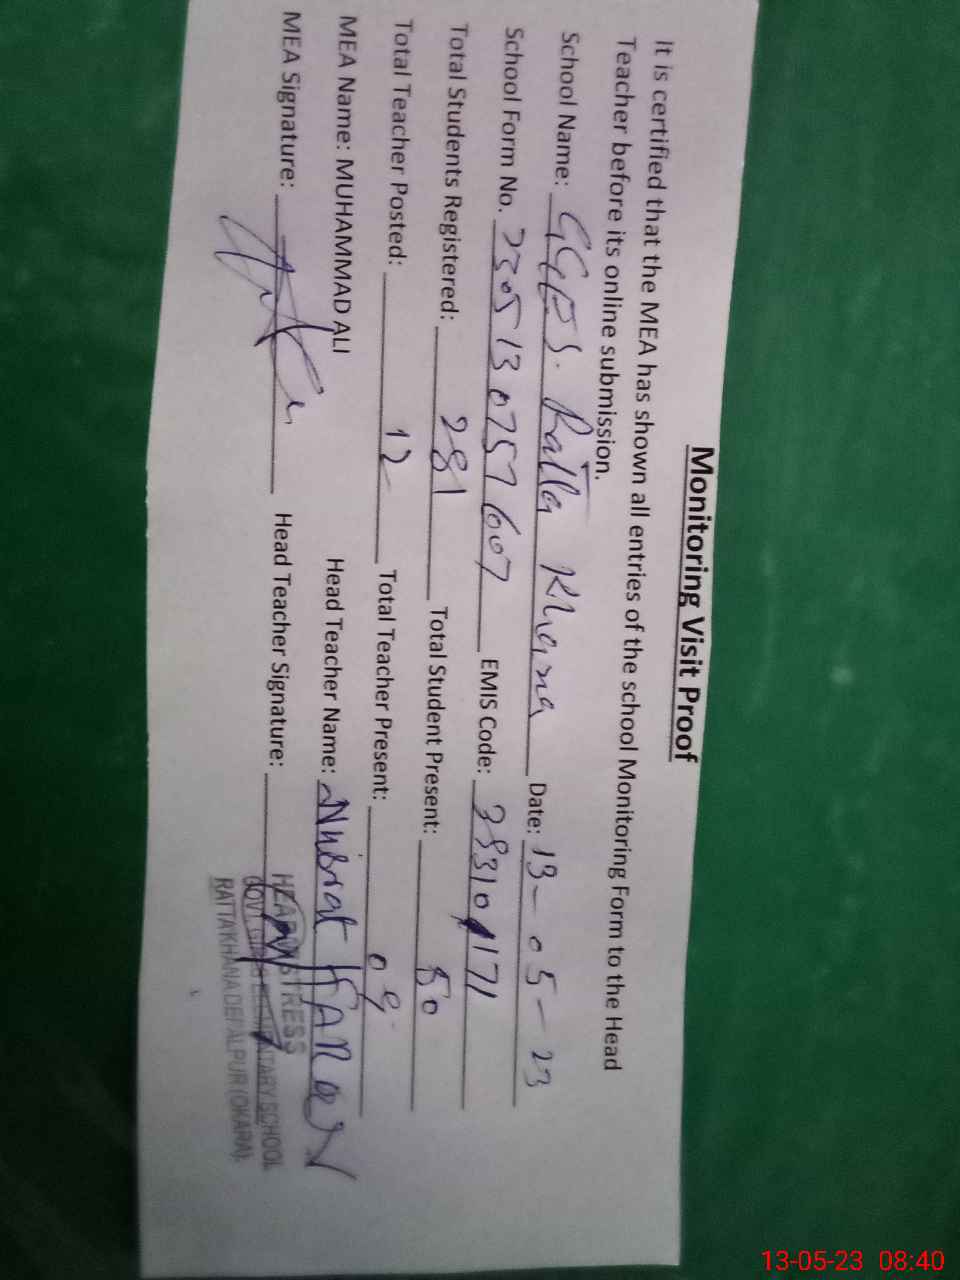 Monitoring Visit Proof
It is certified that the MEA has shown all entries of the school Monitoring Form to the Head
Teacher before its online submission.
School Name: GGES. Ratta Khana Date: 13-05-23
School Form No. 2305130757607 EMIS Code: 39310171
Total Students Registered: 281 Total Student Present: 50
Total Teacher Posted: 12 Total Teacher Present: 09
MEA Name: MUHAMMAD ALI Head Teacher Name: Nusrat
MEA Signature: Head Teacher Signature:
HEADMISTRESS
GOVT GIRLS ELEMENTARY SCHOOL
RATTA KHANA DEPALPUR (OKARA).
13-05-23 08:40